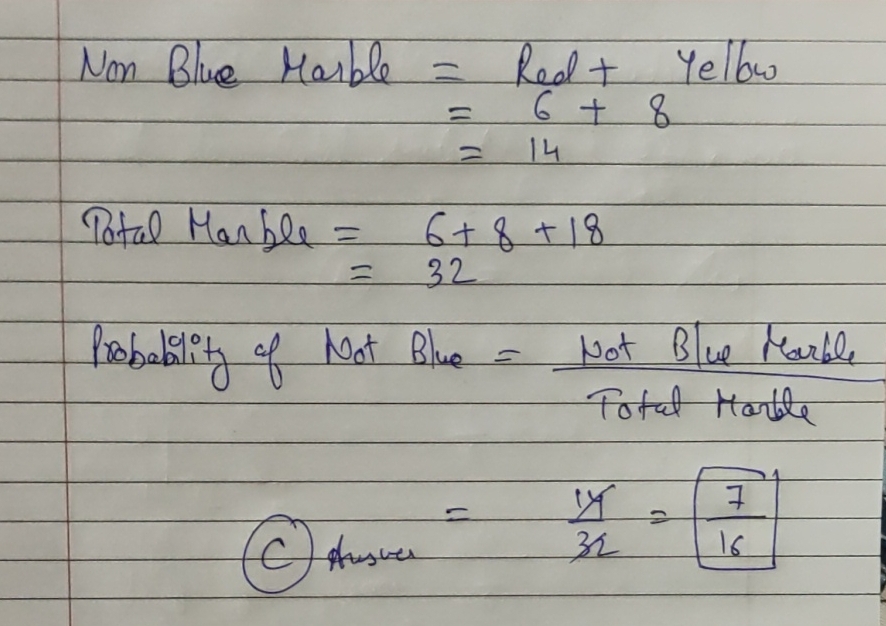 Non Blue Marble = Red + Yellow
= 6 + 8
= 14
Total Marble = 6 + 8 + 18
= 32
Probability of Not Blue = Not Blue Marble
Total Marble
= 14/32 = 7/16
C Answer